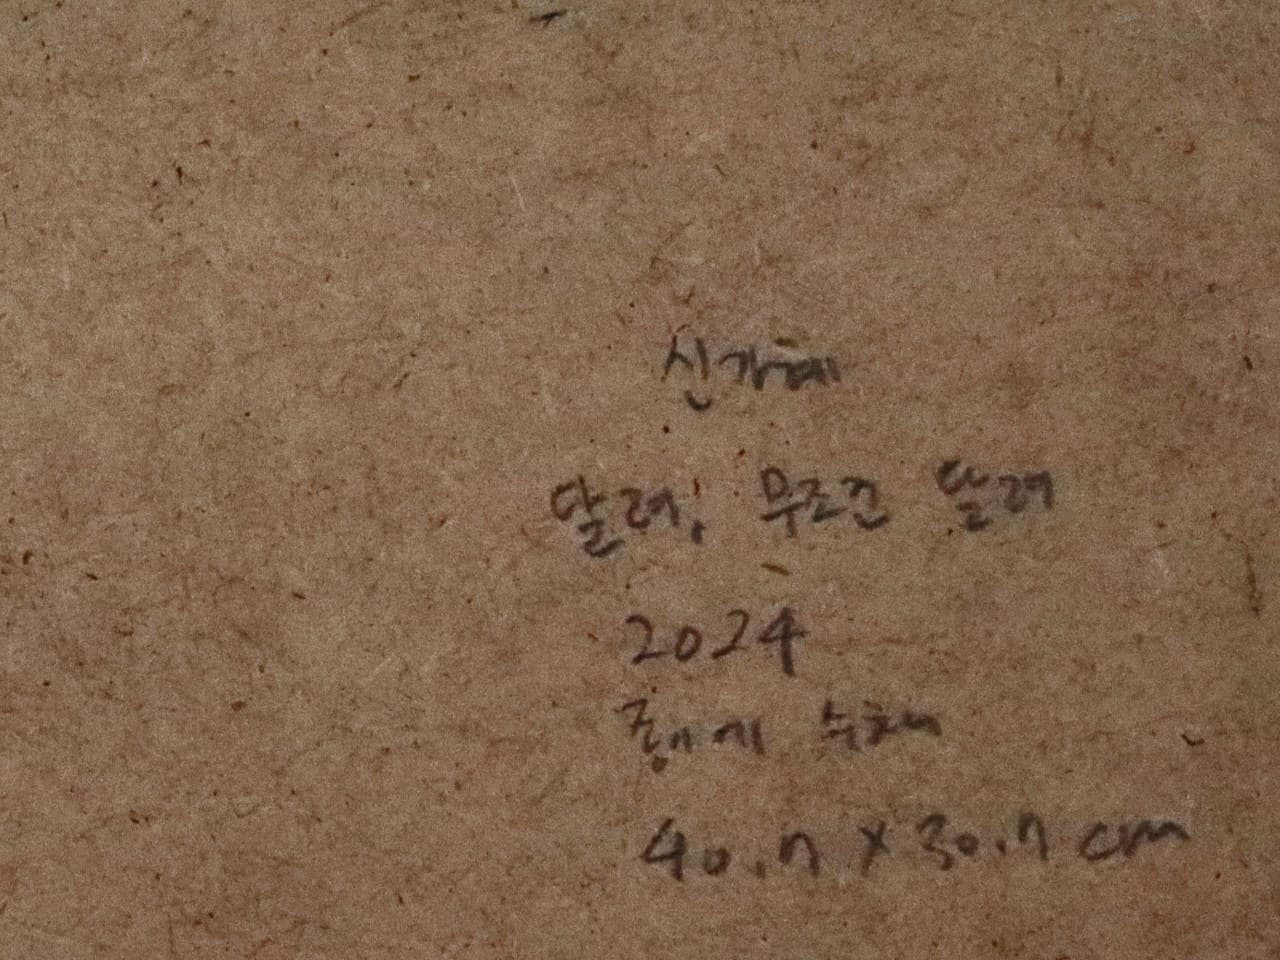 신가혜
달려, 무조건 달려
2024
종이에 수채
40.7 x 30.7 cm